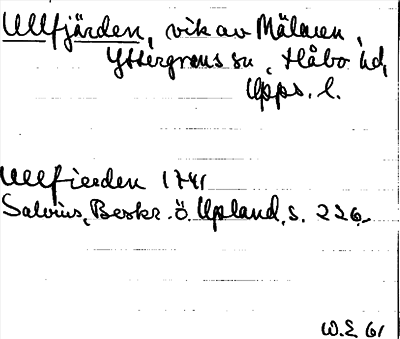 Ullfjärden, vik av Mälaren,
Yttergrans sn, Håbo hd,
Upps. l.
Ullfierden 1741
Salvius, Beskr. ö. Upland, s. 226.
W.E. 61